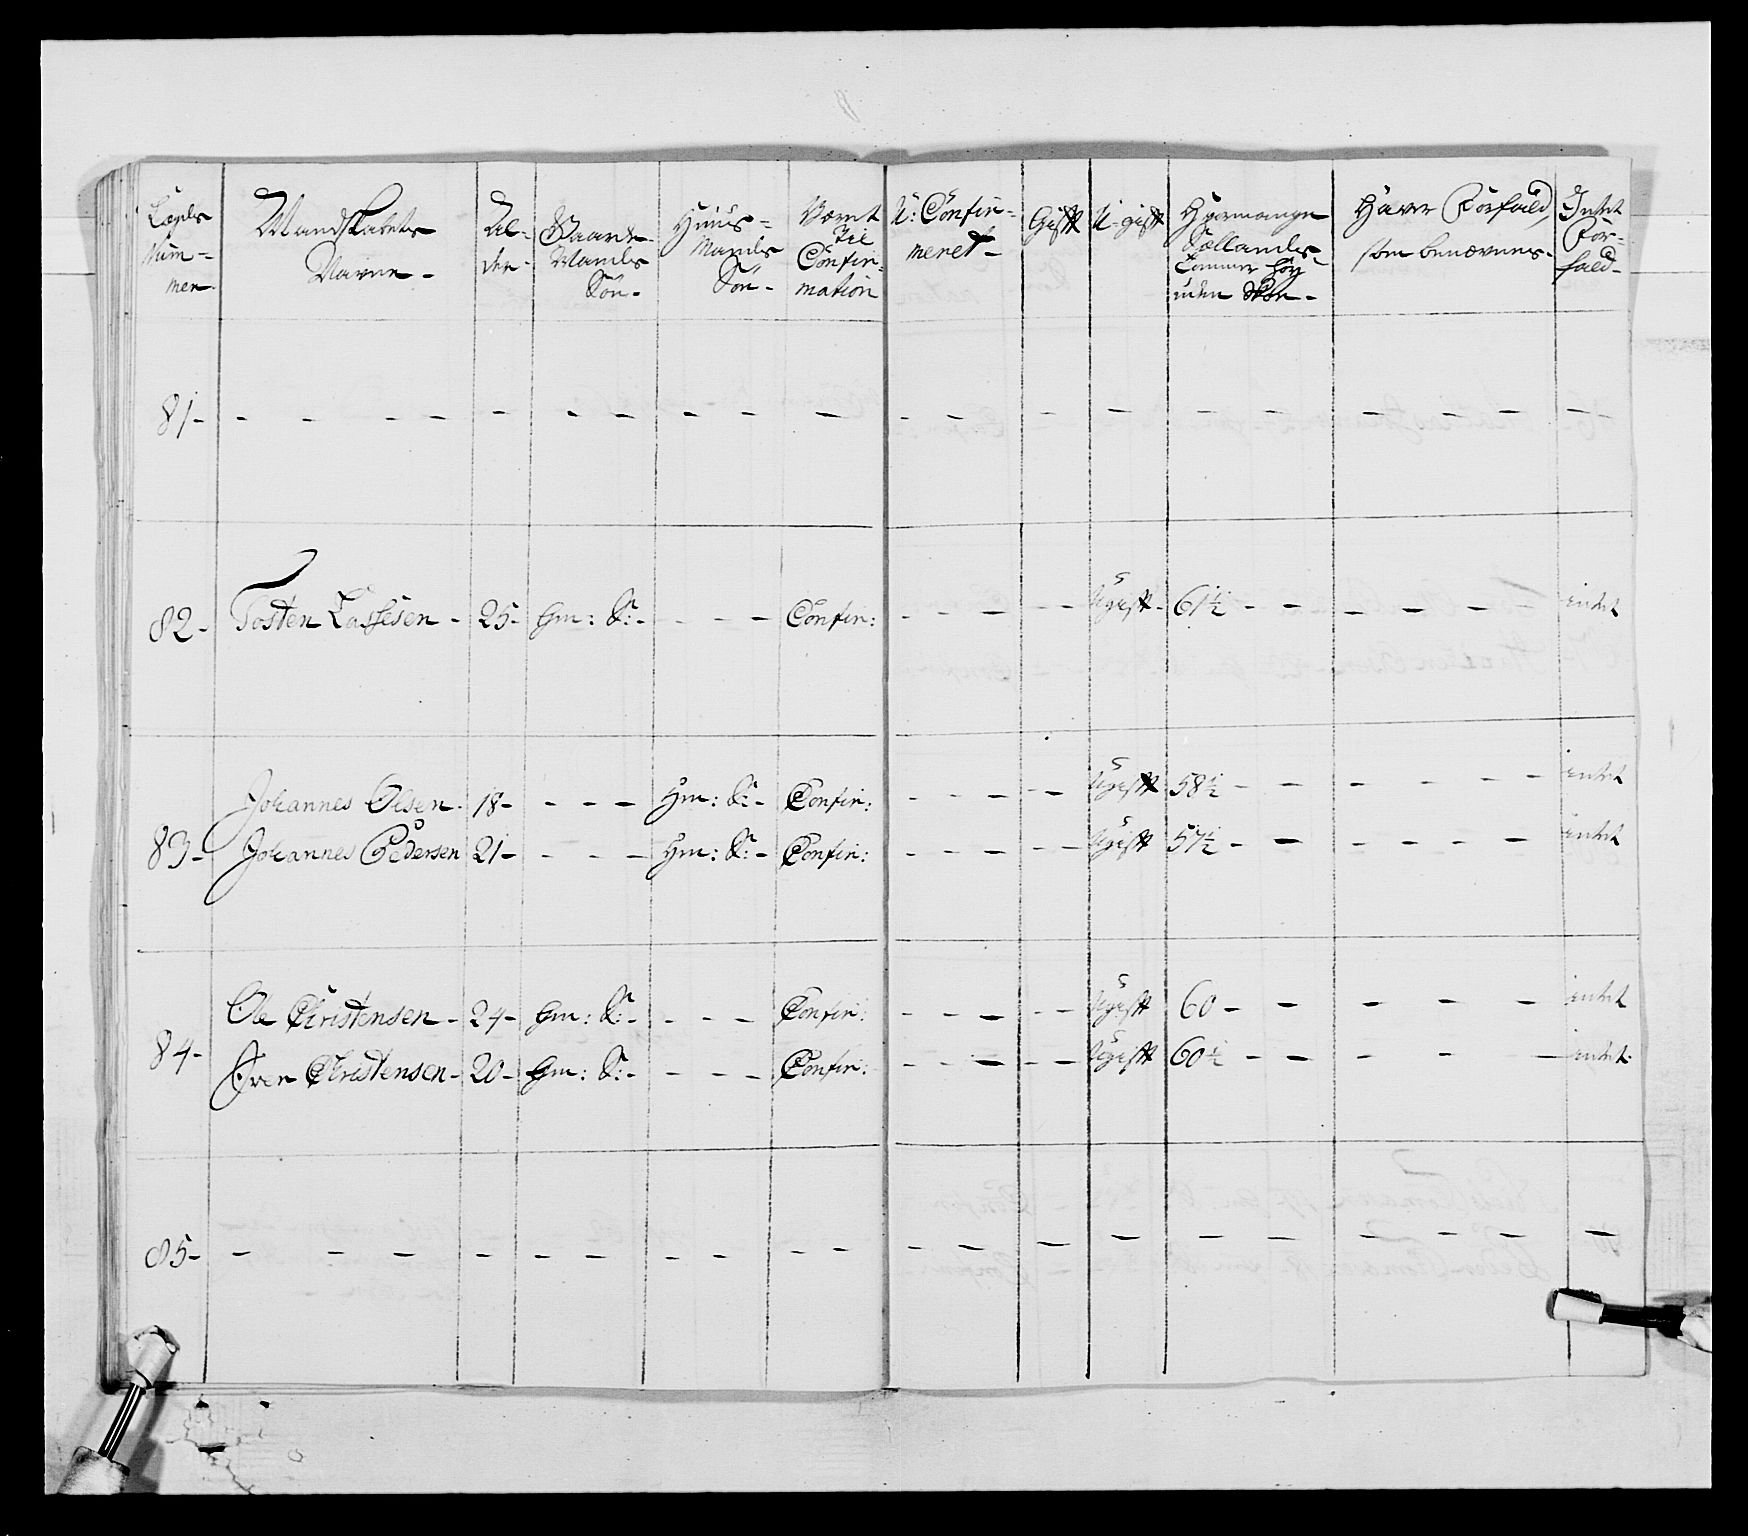 Legds Num- mer.
Mandskabets Navne -
Al- der -
Gaard- Mands Søn -
Huus- Mands Søn -
Været til Confir- mation
U: Confir- meret -
Gift
U-gift
Hvormange Sællandes Tommer høy uden Skoe -
Haver Forfald, som benævnes -
Intet For- fald -
81 -
82 - Tosten Lassesen - 25 - Gm: S: - Confir: - Ugift - 61½ - intet
Johannes Olsen - 18 - Hm: S: - Confir: - Ugift 58½ - intet
83 - Johannes Pedersen 21 - Hm: S: - Confir: - Ugift 57½ - intet
Ole Christensen - 24 - Gm: S: - Confir: - Ugift 60 - intet
84 - Iver Christensen - 20 - Gm: S: - Confir: - Ugift 60½ - intet
85 -